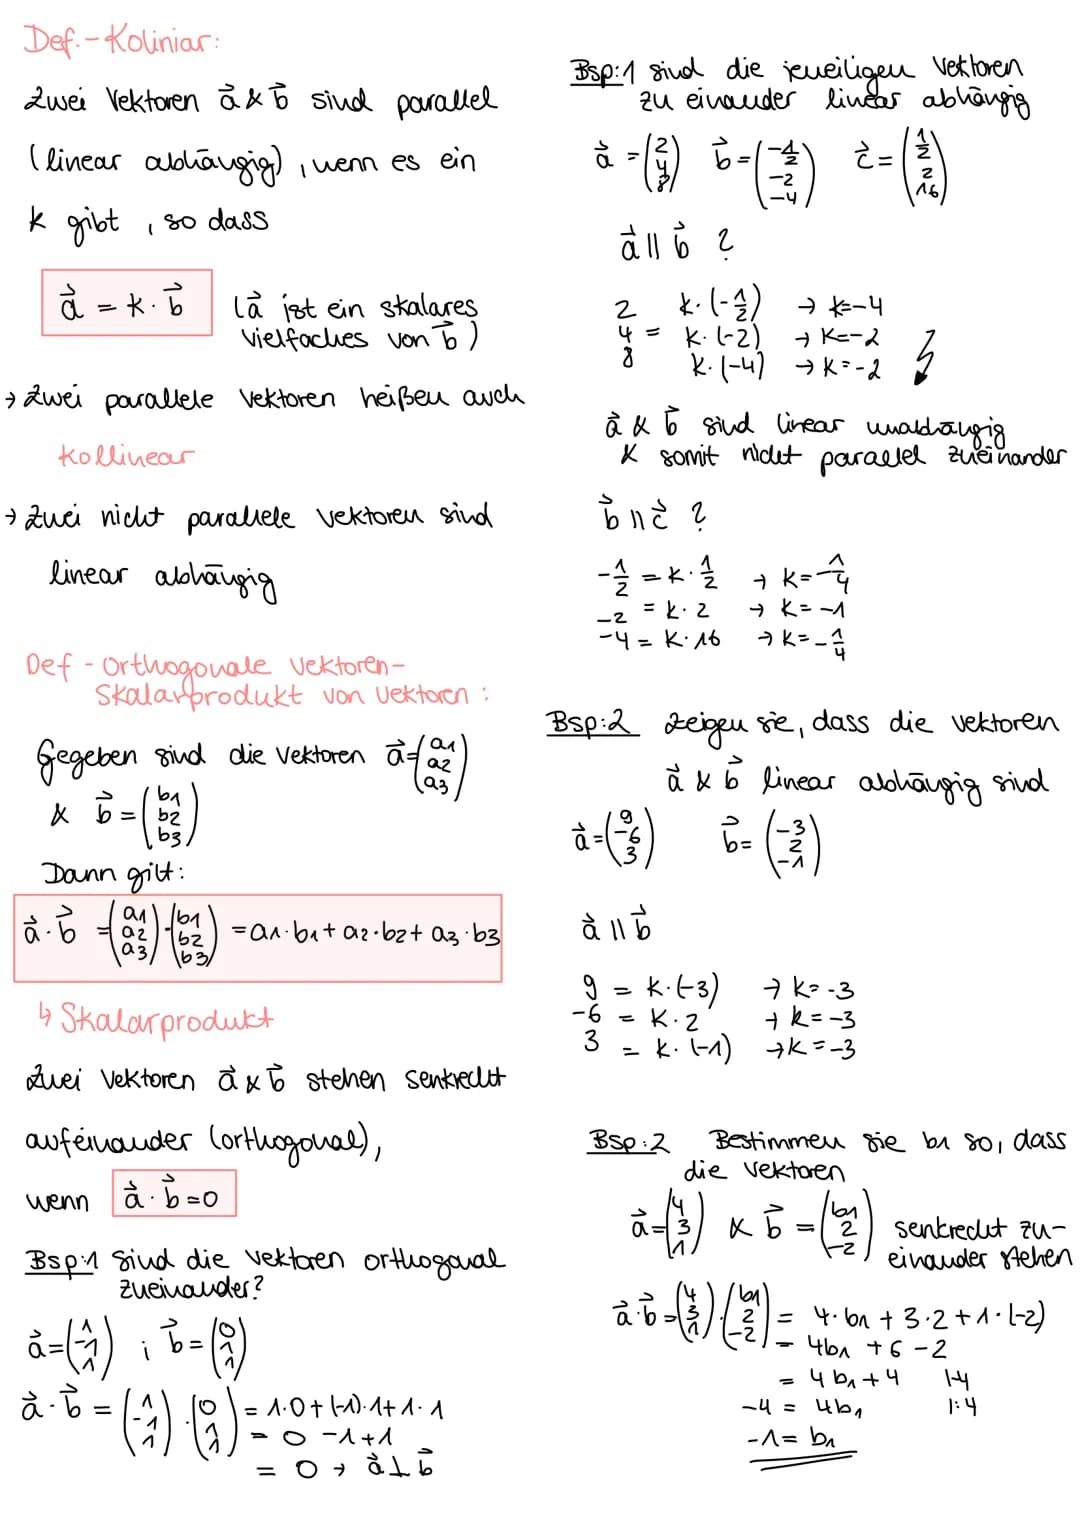 Def.-Koliniar:
Zwei Vektoren a⃗ & b⃗ sind parallel
(linear abhängig), wenn es ein
k gibt, so dass
a⃗ = k · b⃗
(a⃗ ist ein skalares
vielfaches von b⃗)
→ Zwei parallele Vektoren heißen auch
kollinear
→ Zwei nicht parallele Vektoren sind
linear abhängig
Def - Orthogonale Vektoren-
Skalarprodukt von Vektoren:
Gegeben sind die Vektoren a⃗ = (a1 a2 a3)
& b⃗ = (b1 b2 b3)
Dann gilt:
a⃗ · b⃗ = (a1 a2 a3) · (b1 b2 b3) = a1·b1 + a2·b2 + a3·b3
↳ Skalarprodukt
Zwei Vektoren a⃗ & b⃗ stehen senkrecht
aufeinander (orthogonal),
wenn a⃗ · b⃗ = 0
Bsp:1 Sind die Vektoren orthogonal
zueinander?
a⃗ = (1 -1 1) ; b⃗ = (0 1 1)
a⃗ · b⃗ = (1 -1 1) · (0 1 1) = 1·0 + (-1)·1 + 1·1
= 0 -1+1
= 0 → a⃗ ⊥ b⃗
Bsp:1 sind die jeweiligen Vektoren
zu einander linear abhängig
a⃗ = (2 4 8) b⃗ = (-1/2 -2 -4) c⃗ = (1/2 2 16)
a⃗ || b⃗ ?
2 k·(-1/2) → k=-4
4 = k·(-2) → k=-2
8 k·(-4) → k=-2
a⃗ & b⃗ sind linear unabhängig
& somit nicht parallel zueinander
b⃗ || c⃗ ?
-1/2 = k·1/2 → k=-1/4
-2 = k·2 → k=-1
-4 = k·16 → k=-1/4
Bsp:2 Zeigen sie, dass die Vektoren
a⃗ & b⃗ linear abhängig sind
a⃗ = (9 -6 3) b⃗ = (-3 2 -1)
a⃗ || b⃗
9 = k·(-3) → k=-3
-6 = k·2 → k=-3
3 = k·(-1) → k=-3
Bsp:2 Bestimmen sie b1 so, dass
die Vektoren
a⃗ = (4 3 1) & b⃗ = (b1 2 -2) senkrecht zu-
einander stehen
a⃗·b⃗ = (4 3 1) · (b1 2 -2) = 4·b1 + 3·2 + 1·(-2)
= 4b1 + 6 - 2
= 4b1 + 4 |-4
-4 = 4b1 |:4
-1 = b1